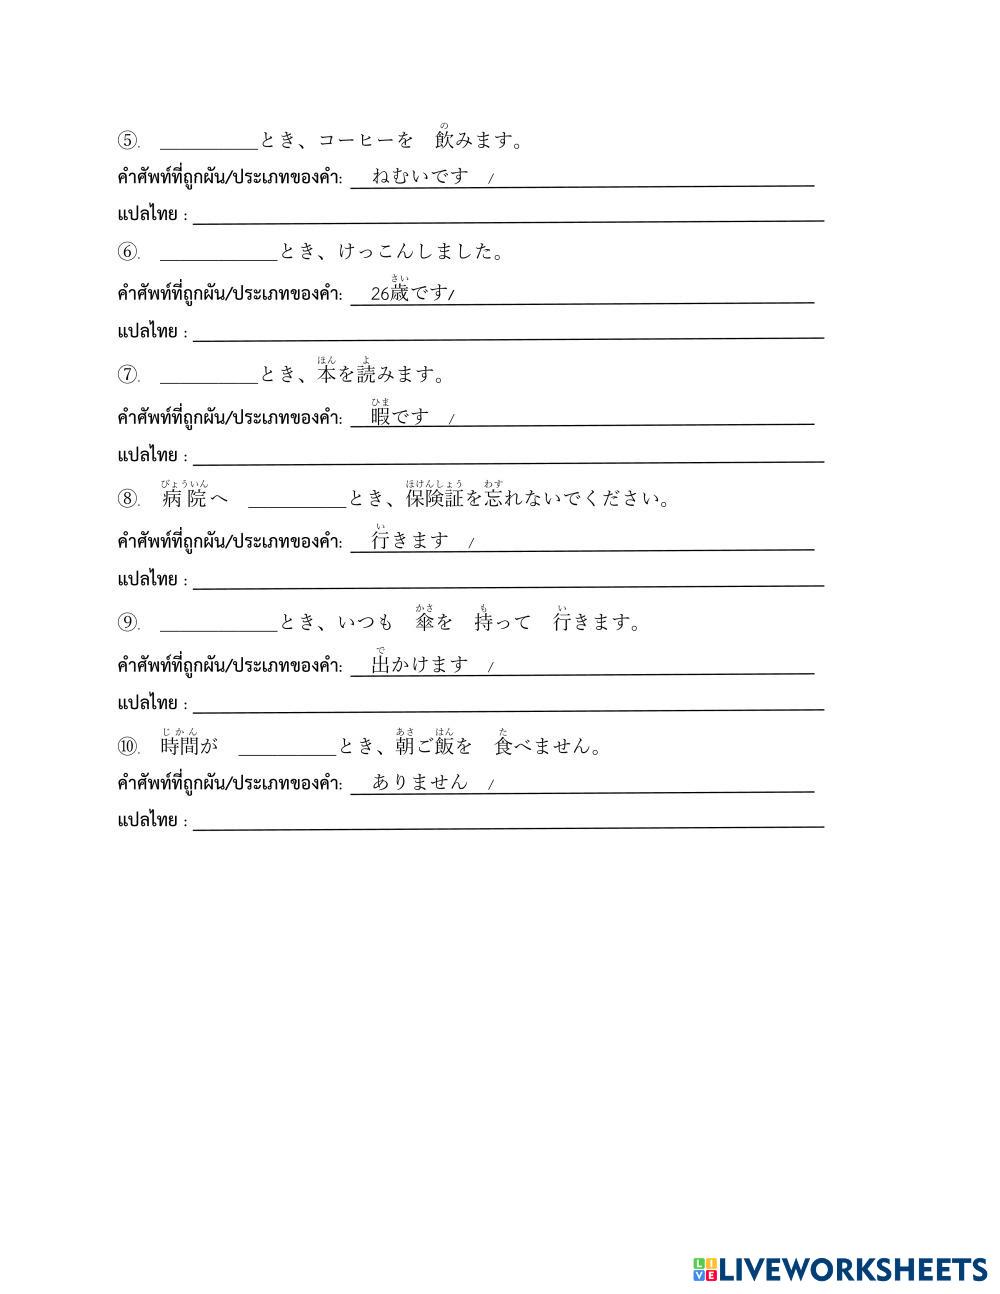 ⑤. __________とき、コーヒーを　飲みます。
の
คำศัพท์ที่ถูกผัน/ประเภทของคำ: ねむいです /
แปลไทย :
⑥. ____________とき、けっこんしました。
คำศัพท์ที่ถูกผัน/ประเภทของคำ: 26歳です/
さい
แปลไทย :
⑦. __________とき、本を読みます。
ほん よ
คำศัพท์ที่ถูกผัน/ประเภทของคำ: 暇です /
ひま
แปลไทย :
⑧. 病院へ __________とき、保険証を忘れないでください。
びょういん ほけんしょう わす
คำศัพท์ที่ถูกผัน/ประเภทของคำ: 行きます /
い
แปลไทย :
⑨. ____________とき、いつも　傘を　持って　行きます。
かさ も い
คำศัพท์ที่ถูกผัน/ประเภทของคำ: 出かけます /
で
แปลไทย :
⑩. 時間が __________とき、朝ご飯を　食べません。
じかん あさ はん た
คำศัพท์ที่ถูกผัน/ประเภทของคำ: ありません /
แปลไทย :
LIVE LIVEWORKSHEETS